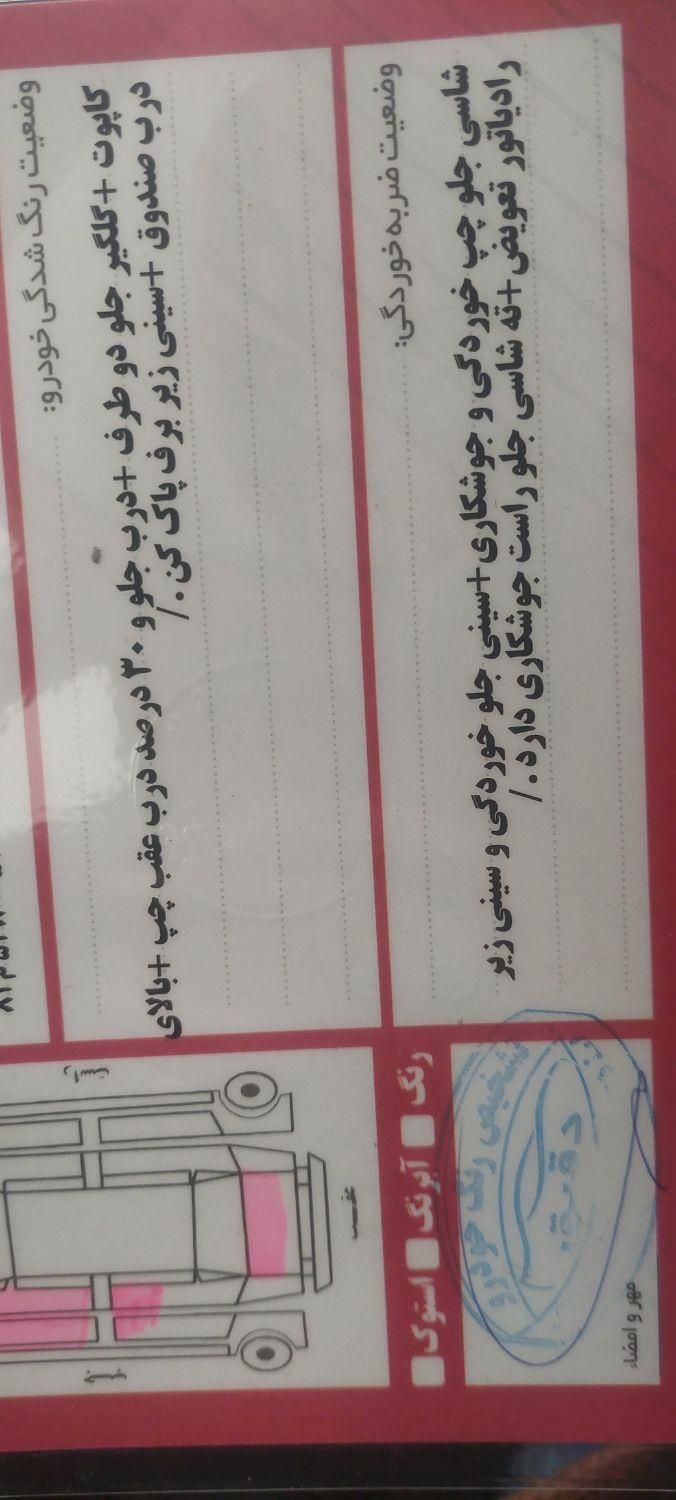 وضعیت رنگ شدگی خودرو:
کاپوت +گلگیر جلو دو طرف +درب جلو و ۳۰ درصد درب عقب چپ +بالای
درب صندوق +سینی زیر برف پاک کن./
وضعیت ضربه خوردگی:
شاسی جلو چپ خوردگی و جوشکاری +سینی جلو خوردگی و سینی زیر
رادیاتور تعویض +ته شاسی جلو راست جوشکاری دارد./
عقب
رنگ
آبرنگ
استوک
تشخیص رنگ خودرو
دقیق
مهر و امضاء